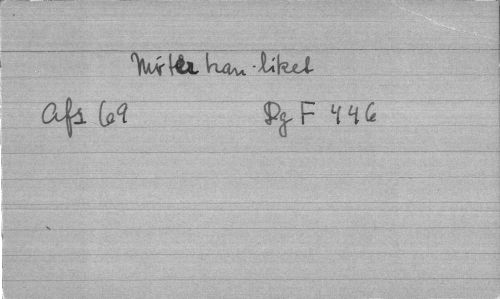 Möter han liket
Afs 69 Dg F 446